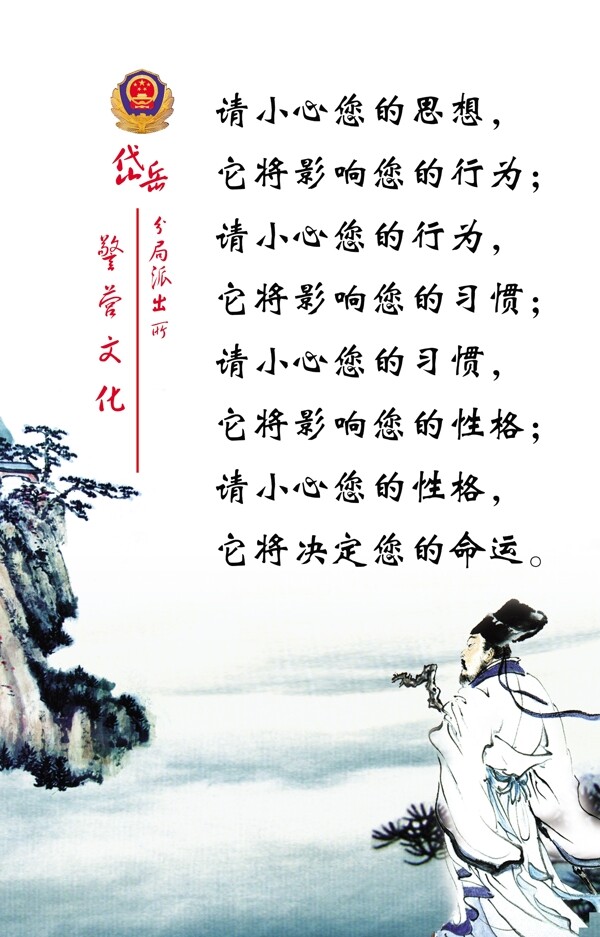 岱岳
分局派出所
警营文化
请小心您的思想，
它将影响您的行为；
请小心您的行为，
它将影响您的习惯；
请小心您的习惯，
它将影响您的性格；
请小心您的性格，
它将决定您的命运。